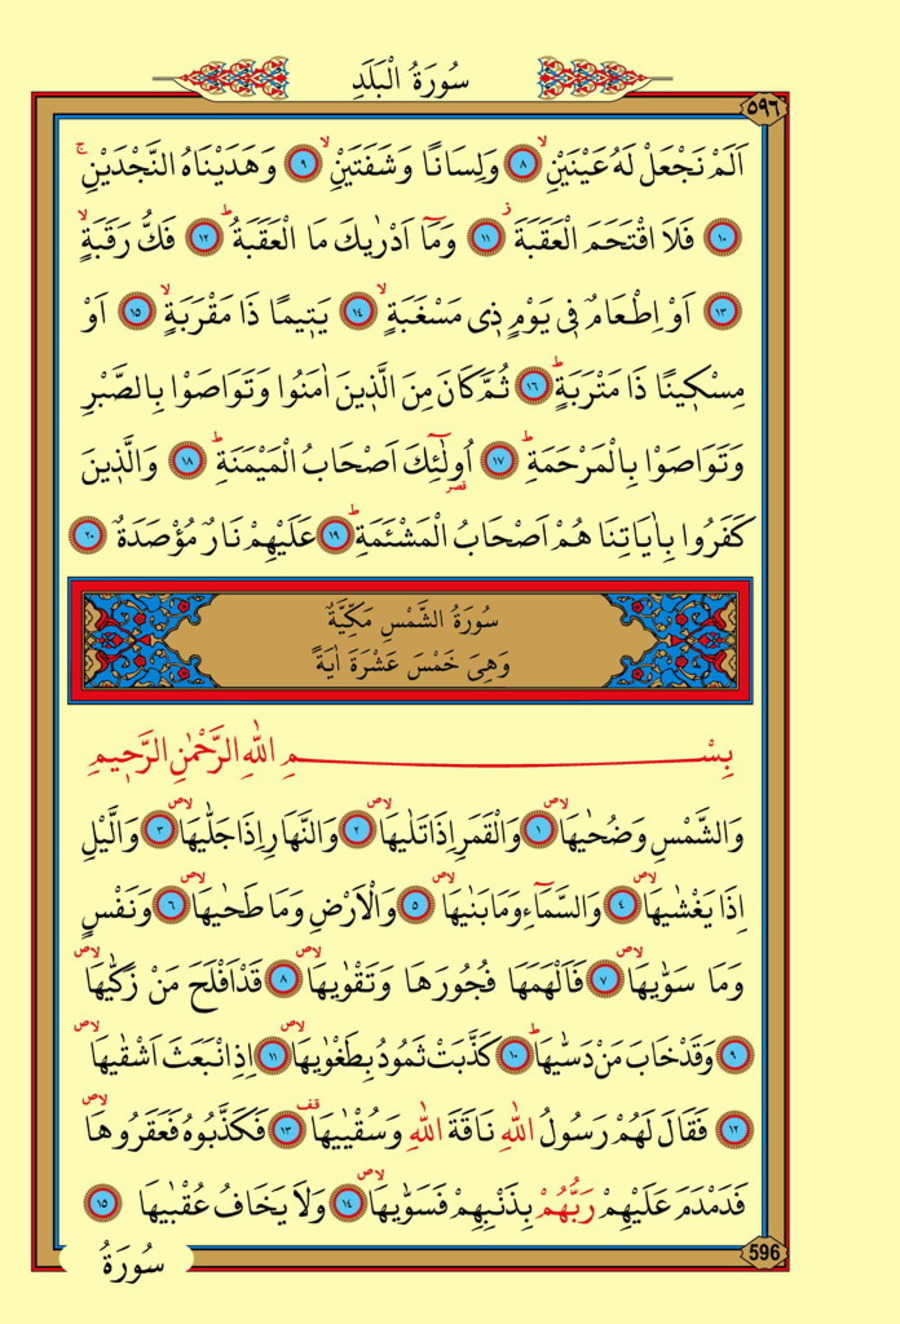 سُورَةُ الْبَلَدِ
٥٩٦
اَلَمْ نَجْعَلْ لَهُ عَيْنَيْنِۙ ﴿٨﴾ وَلِسَانًا وَشَفَتَيْنِۙ ﴿٩﴾ وَهَدَيْنَاهُ النَّجْدَيْنِۚ
﴿١٠﴾ فَلَا اقْتَحَمَ الْعَقَبَةَۘ ﴿١١﴾ وَمَٓا اَدْرٰيكَ مَا الْعَقَبَةُۜ ﴿١٢﴾ فَكُّ رَقَبَةٍۙ
﴿١٣﴾ اَوْ اِطْعَامٌ فٖي يَوْمٍ ذٖي مَسْغَبَةٍۙ ﴿١٤﴾ يَتٖيمًا ذَا مَقْرَبَةٍۙ ﴿١٥﴾ اَوْ
مِسْكٖينًا ذَا مَتْرَبَةٍۜ ﴿١٦﴾ ثُمَّ كَانَ مِنَ الَّذٖينَ اٰمَنُوا وَتَوَاصَوْا بِالصَّبْرِ
وَتَوَاصَوْا بِالْمَرْحَمَةِۜ ﴿١٧﴾ اُولٰٓئِكَ اَصْحَابُ الْمَيْمَنَةِۜ ﴿١٨﴾ وَالَّذٖينَ
قصر
كَفَرُوا بِاٰيَاتِنَا هُمْ اَصْحَابُ الْمَشْـَٔمَةِۜ ﴿١٩﴾ عَلَيْهِمْ نَارٌ مُؤْصَدَةٌ ﴿٢٠﴾
سُورَةُ الشَّمْسِ مَكِّيَّةٌ
وَهِيَ خَمْسَ عَشْرَةَ اٰيَةً
بِسْمِ اللّٰهِ الرَّحْمٰنِ الرَّحٖيمِ
وَالشَّمْسِ وَضُحٰيهَاۙۖ ﴿١﴾ وَالْقَمَرِ اِذَا تَلٰيهَاۙۖ ﴿٢﴾ وَالنَّهَارِ اِذَا جَلّٰيهَاۙۖ ﴿٣﴾ وَالَّيْلِ
اِذَا يَغْشٰيهَاۙۖ ﴿٤﴾ وَالسَّمَٓاءِ وَمَا بَنٰيهَاۙۖ ﴿٥﴾ وَالْاَرْضِ وَمَا طَحٰيهَاۙۖ ﴿٦﴾ وَنَفْسٍ
وَمَا سَوّٰيهَاۙۖ ﴿٧﴾ فَاَلْهَمَهَا فُجُورَهَا وَتَقْوٰيهَاۙۖ ﴿٨﴾ قَدْ اَفْلَحَ مَنْ زَكّٰيهَاۙۖ
﴿٩﴾ وَقَدْ خَابَ مَنْ دَسّٰيهَاۜ ﴿١٠﴾ كَذَّبَتْ ثَمُودُ بِطَغْوٰيهَاۙۖ ﴿١١﴾ اِذِ انْبَعَثَ اَشْقٰيهَاۙۖ
﴿١٢﴾ فَقَالَ لَهُمْ رَسُولُ اللّٰهِ نَاقَةَ اللّٰهِ وَسُقْيٰيهَا قف ﴿١٣﴾ فَكَذَّبُوهُ فَعَقَرُوهَاۙۖ
فَدَمْدَمَ عَلَيْهِمْ رَبُّهُمْ بِذَنْبِهِمْ فَسَوّٰيهَاۙۖ ﴿١٤﴾ وَلَا يَخَافُ عُقْبٰيهَا ﴿١٥﴾
596
سُورَةُ